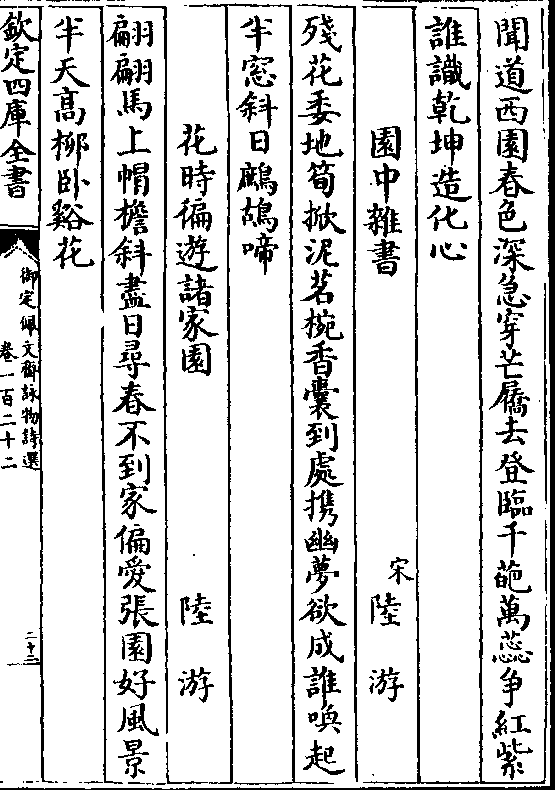 聞道西園春色深急穿芒屩去登臨千葩萬蕊爭紅紫
誰識乾坤造化心
園中雜書
宋陸游
殘花委地筍掀泥茗椀香囊到處擕幽夢欲成誰喚起
半窓斜日鷓鴣啼
花時徧遊諸家園
陸游
翩翩馬上帽檐斜盡日尋春不到家偏愛張園好風景
半天高柳卧谿花
欽定四庫全書
御定佩文齋詠物詩選
卷一百二十二
二十三